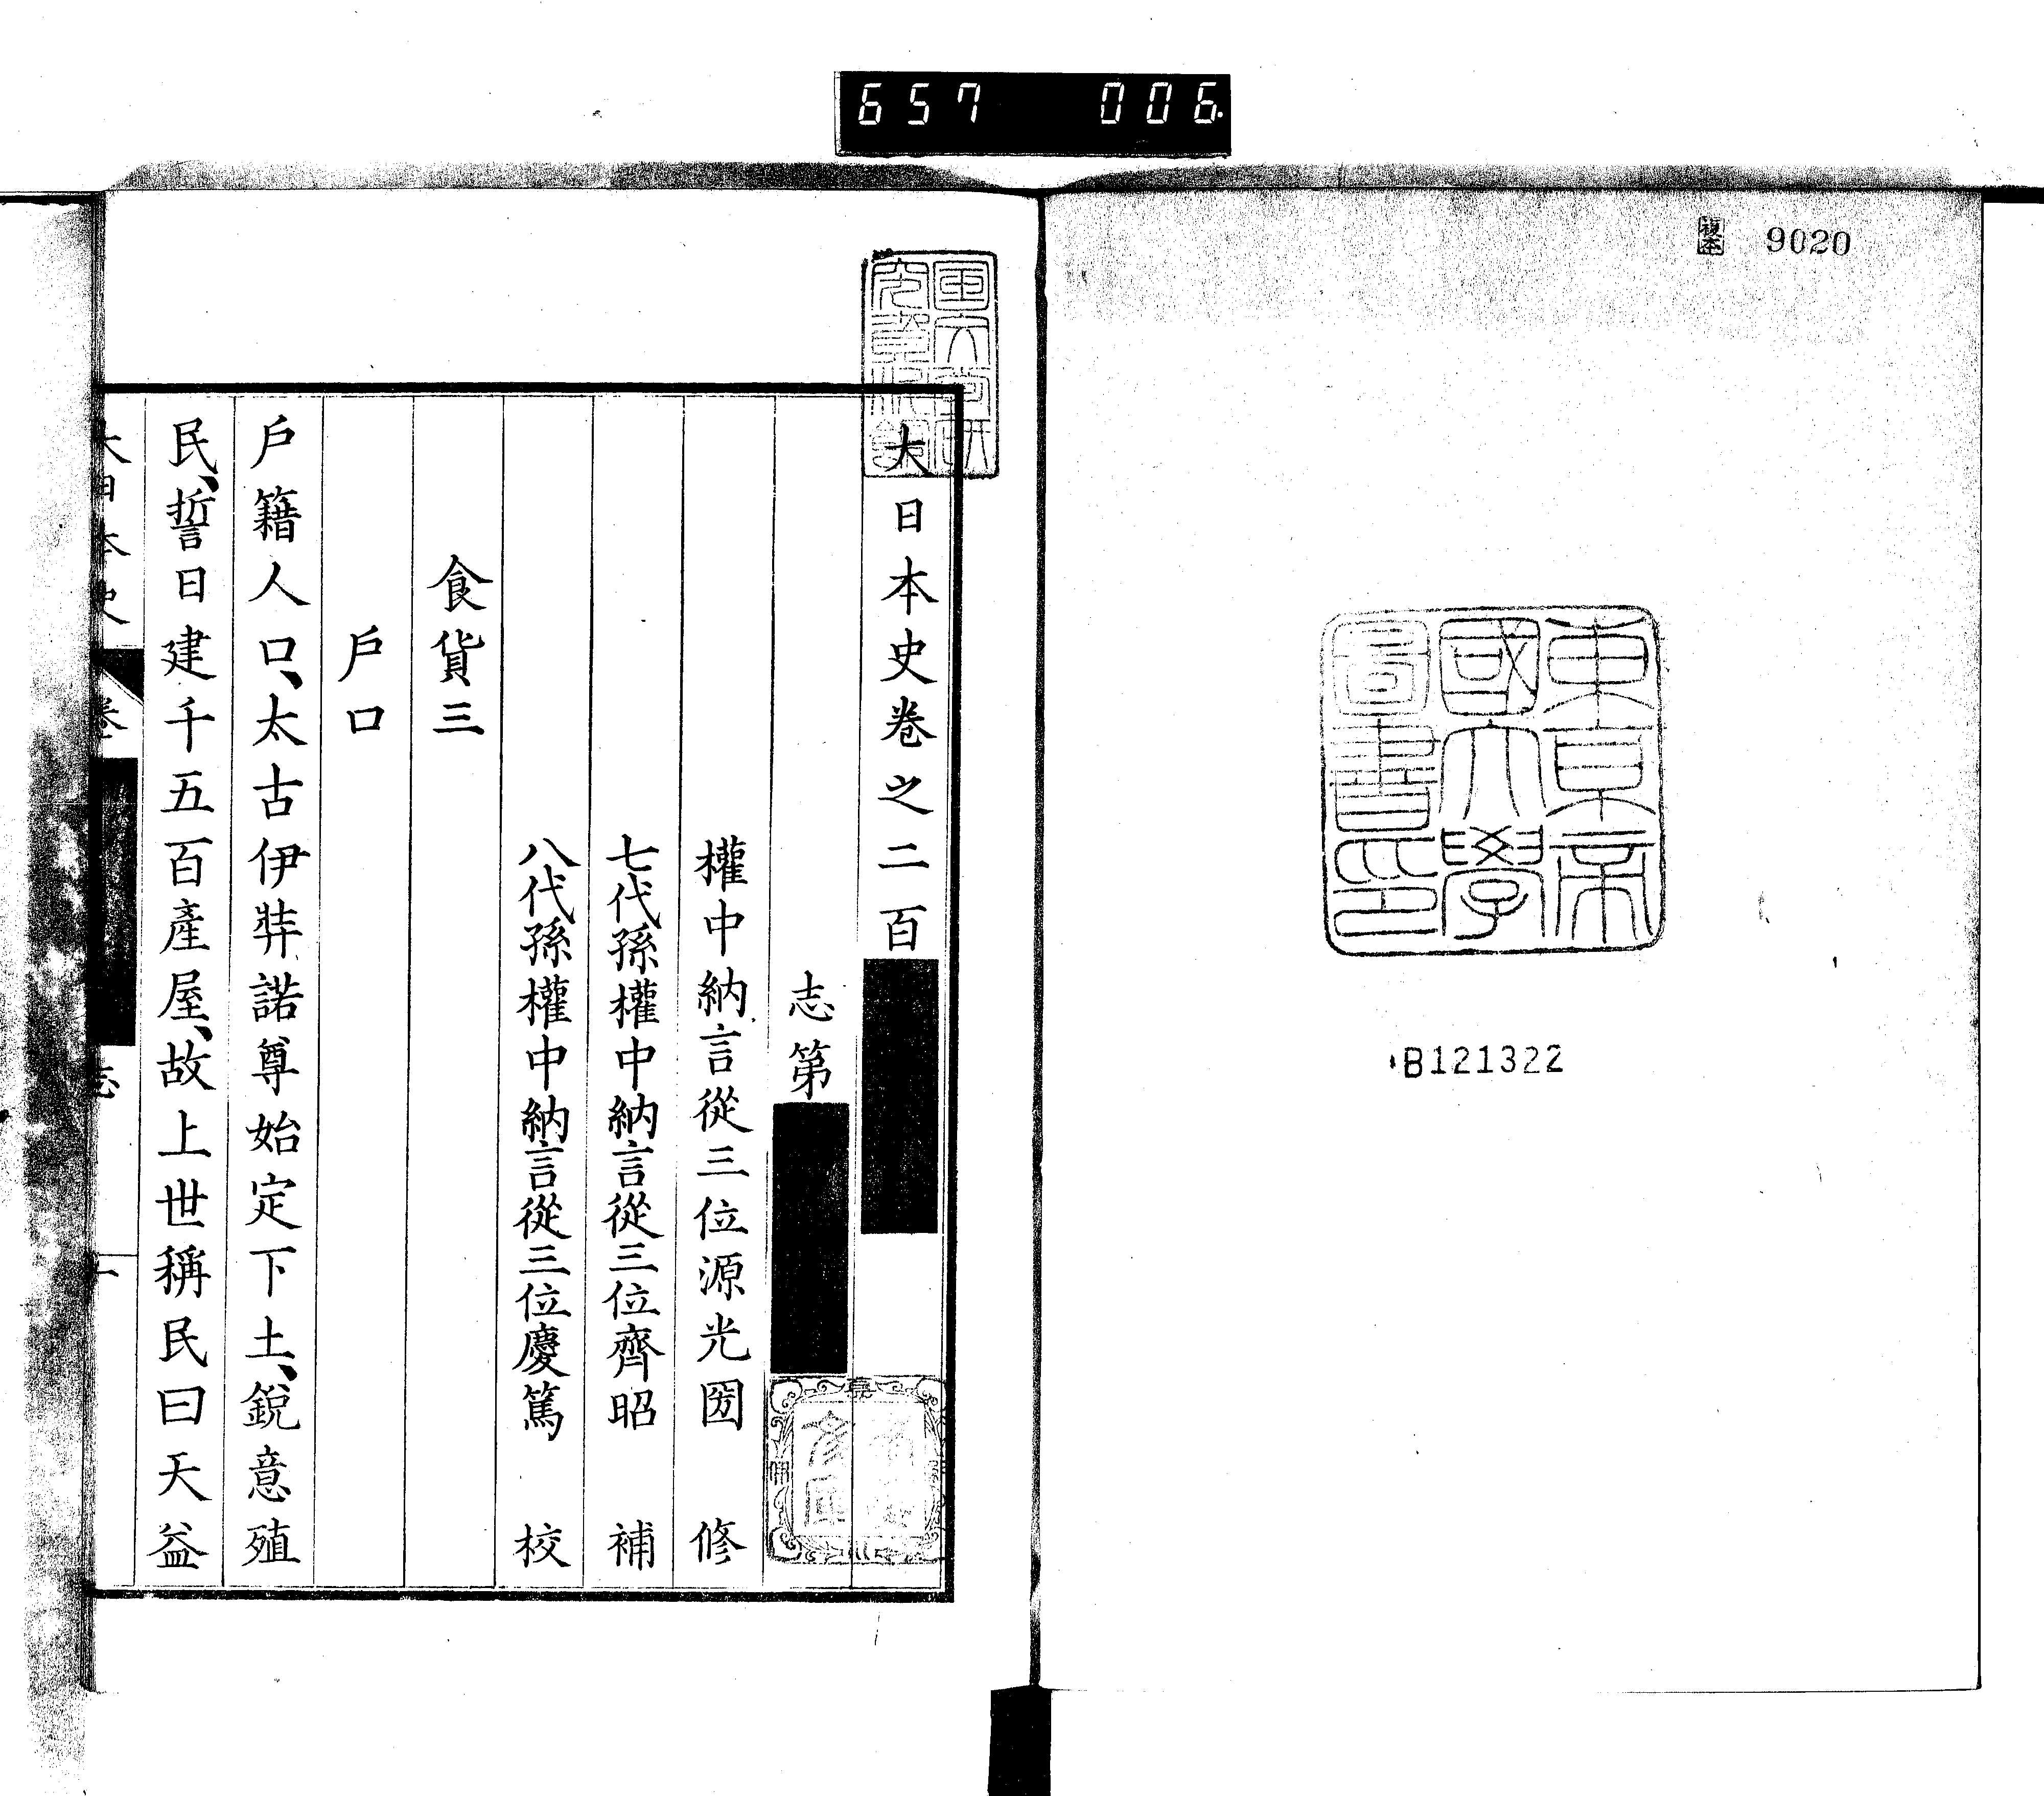 657 006
複本 9020
東京帝
國大學
圖書印
B121322
大日本史卷之二百
志第
權中納言從三位源光圀 修
七代孫權中納言從三位齊昭 補
八代孫權中納言從三位慶篤 校
食貨三
戶口
戶籍人口、太古伊弉諾尊始定下土、銳意殖
民、誓日建千五百產屋、故上世稱民曰天益
大日本史 卷 志 一